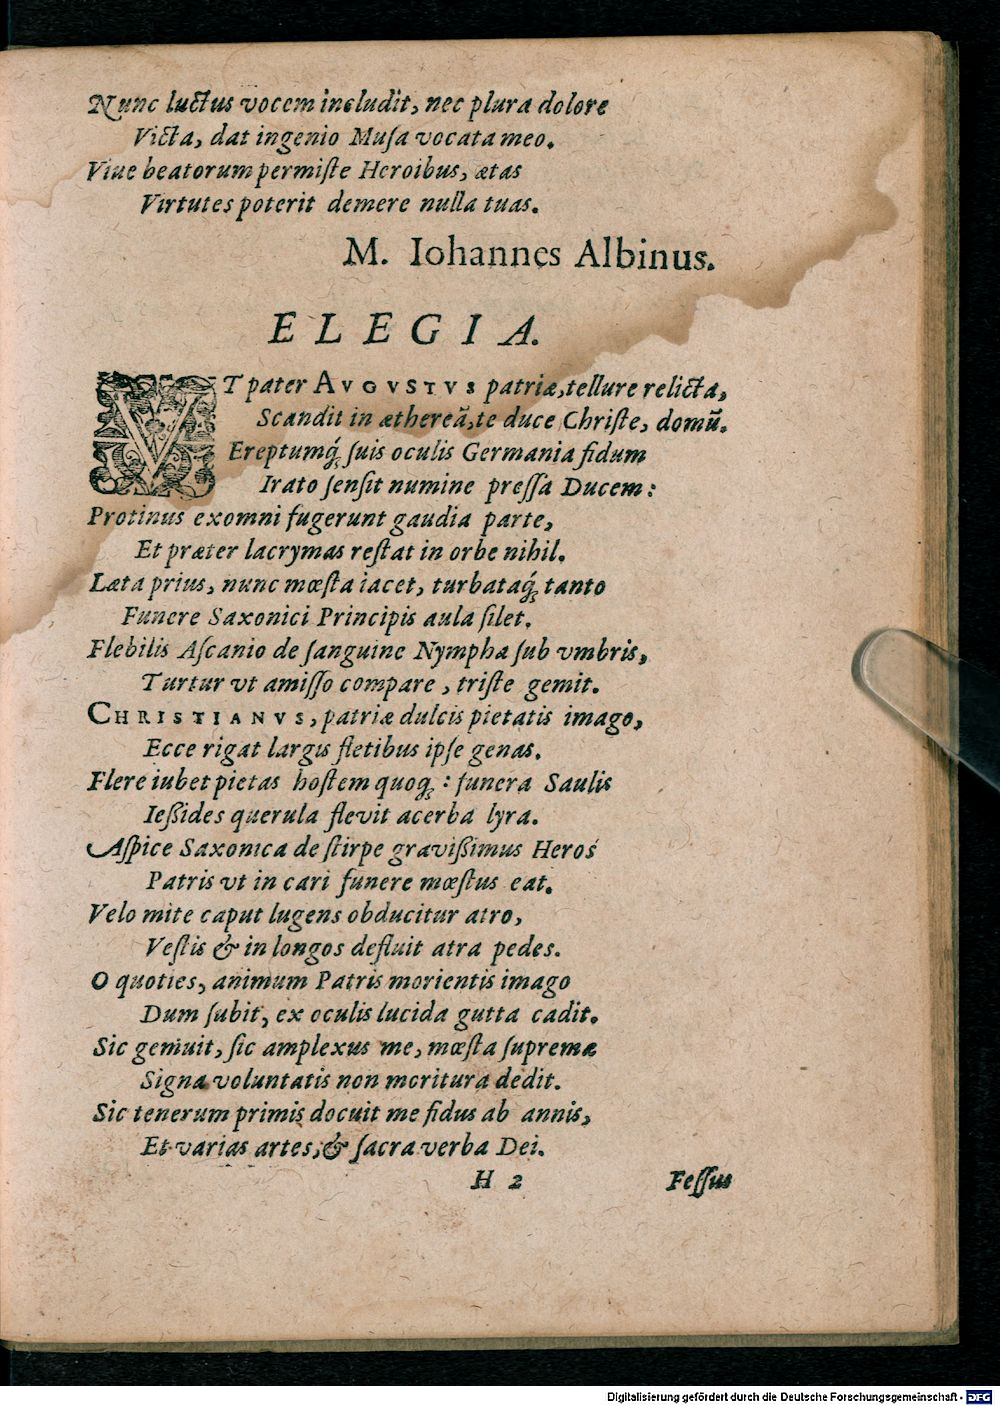 Nunc luctus vocem includit, nec plura dolore
Victa, dat ingenio Musa vocata meo.
Viue beatorum permiste Heroibus, ætas
Virtutes poterit demere nulla tuas.
M. Iohannes Albinus.
ELEGIA.
VT pater AVGVSTVS patriæ, tellure relicta,
Scandit in ætthereã, te duce Christe, domũ.
Ereptumq́; suis oculis Germania fidum
Irato sensit numine pressa Ducem:
Protinus ex omni fugerunt gaudia parte,
Et præter lacrymas restat in orbe nihil.
Læta prius, nunc mœsta iacet, turbataq́; tanto
Funere Saxonici Principis aula silet.
Flebilis Ascanio de sanguine Nympha sub vmbris,
Turtur vt amisso compare, triste gemit.
CHRISTIANVS, patriæ dulcis pietatis imago,
Ecce rigat largis fletibus ipse genas.
Flere iubet pietas hostem quoq;: funera Saulis
Ießides querula flevit acerba lyra.
Aspice Saxonica de stirpe gravißimus Heros
Patris vt in cari funere mœstus eat.
Velo mite caput lugens obducitur atro,
Vestis & in longos defluit atra pedes.
O quoties, animum Patris morientis imago
Dum subit, ex oculis lucida gutta cadit.
Sic gemuit, sic amplexus me, mœsta supremæ
Signa voluntatis non moritura dedit.
Sic tenerum primis docuit me fidus ab annis,
Et varias artes, & sacra verba Dei.
H 2 Fessus
Digitalisierung gefördert durch die Deutsche Forschungsgemeinschaft - DFG